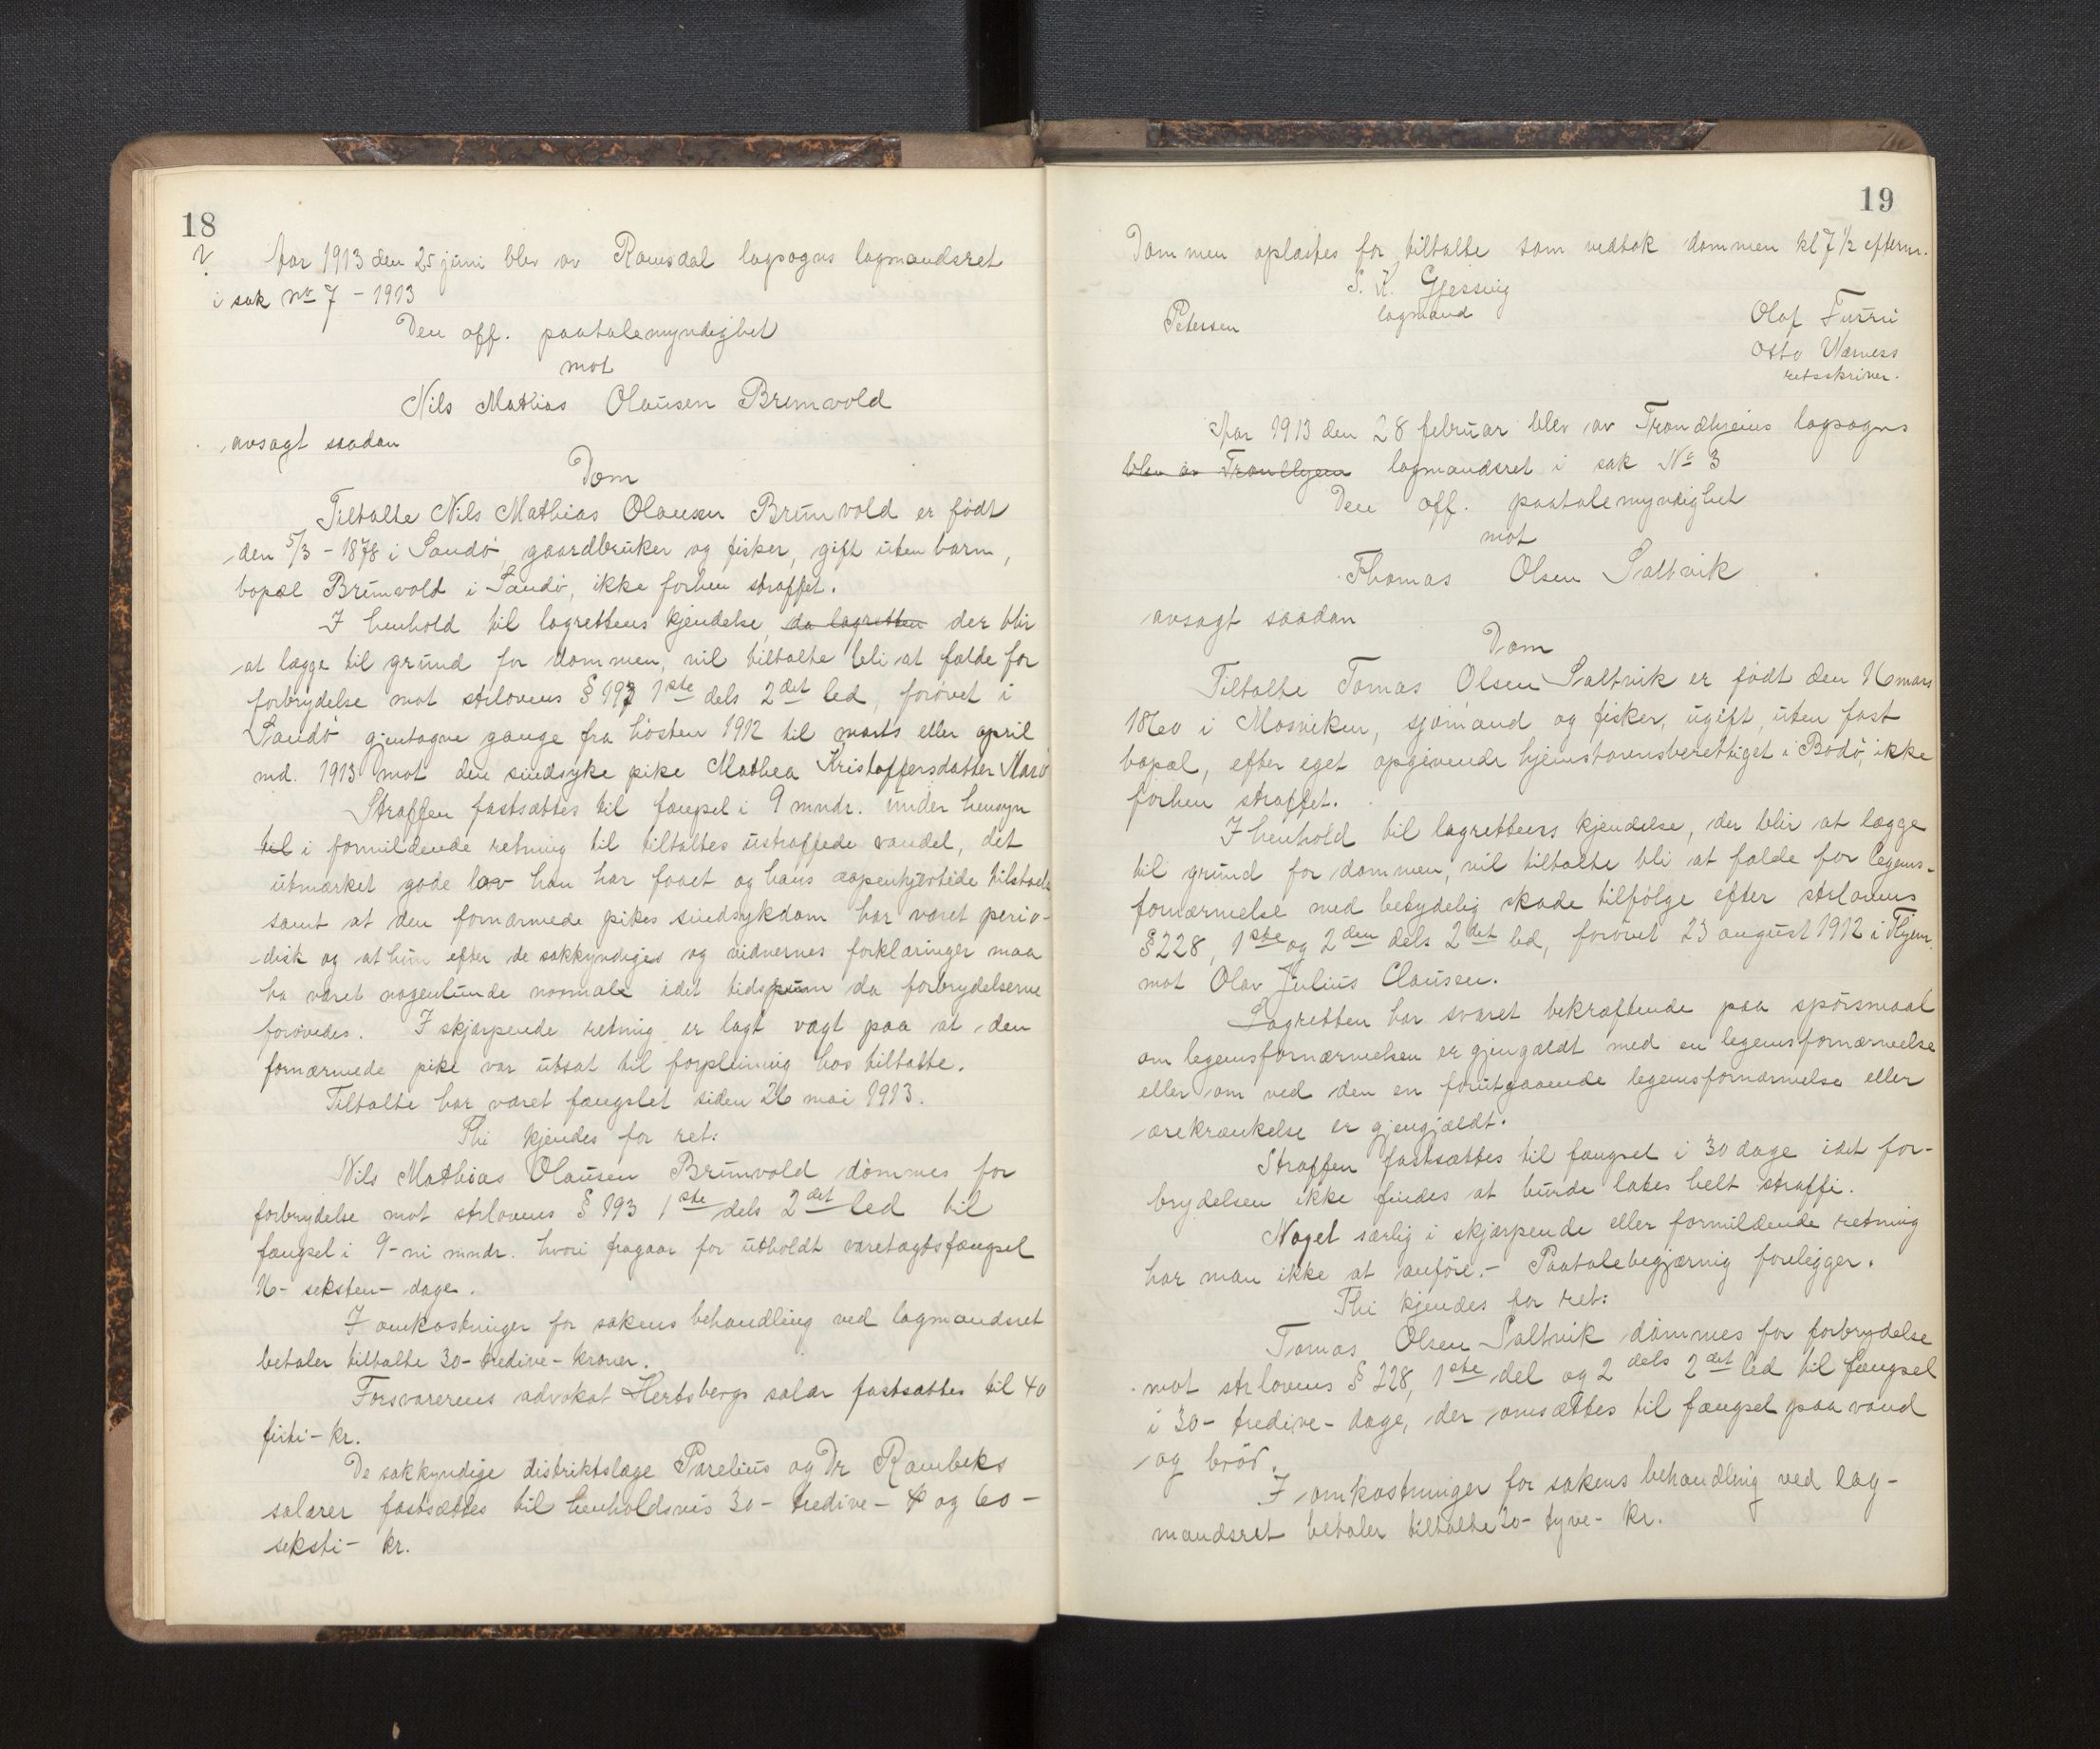 18
V. Aar 1913 den 25 juni blev av Romsdal lagsogns lagmandsret
i sak No 7 – 1913
Den off. paatalemyndighet
mot
Nils Mathias Olausen Brunvold
avsagt saadan
Dom
Tiltalte Nils Mathias Olausen Brunvold er født
den 5/3 – 1878 i Sandø, gaardbruker og fisker, gift uten barn,
bopæl Brunvold i Sandø, ikke forhen straffet.
I henhold til lagrettens kjendelse, da lagretten der blir
at lægge til grund for dommen, vil tiltalte bli at fælde for
forbrydelse mot strlovens § 193 1ste dels 2det led, forøvet i
Sandø gjentagne gange fra høsten 1912 til marts eller april
md. 1913 mot den sindsyke pike Mathea Kristoffersdatter
Straffen fastsættes til fængsel i 9 mndr. under hensyn
til i formildende retning til tiltaltes ustraffede vandel, det
utmærket gode lov han har faaet og hans aapenhjertede tilstaaelse
samt at den fornærmede pikes sindsykdom har været perio-
disk og at hun efter de sakkyndiges og vidnernes forklaringer maa
ha været nogenlunde normale i det tidspum da forbrydelserne
forøvedes. I skjærpende retning er lagt vægt paa at den
fornærmede pike var utsat til forpleining hos tiltalte.
Tiltalte har været fængslet siden 26 mai 1913.
Thi kjendes for ret:
Nils Mathias Olausen Brunvold dømmes for
forbrydelse mot strlovens § 193 1ste dels 2det led til
fængsel i 9-ni mndr. hvori fragaar for utholdt varetægtsfængsel
16- seksten- dage.
I omkostninger for sakens behandling ved lagmandsret
betaler tiltalte 30- tredive- kroner.
Forsvarerens advokat Hertsbergs salær fastsættes til 40
firti- kr.
De sakkyndige distriktslæge Parelius og Dr Rambeks
salærer fastsættes til henholdsvis 30- tredive- og 60-
seksti- kr.
19
Dommen oplæstes for tiltalte som vedtok dommen kl 7 1/2 efterm.
S. K. Gjessing
lagmand
Petersen
Olaf Furru
Otto Værness
retsskriver.
Aar 1913 den 28 februar blev av Trondhjems lagsogns
blev av Trondhjem lagmandsret i sak No 3
Den off. paatalemyndighet
mot
Thomas Olsen Saltvik
avsagt saadan
Dom
Tiltalte Tomas Olsen Saltvik er født den 16 mars
1860 i Mosviken, sjømand og fisker, ugift, uten fast
bopæl, efter eget opgivende hjemstavnsberettiget i Bodø, ikke
forhen straffet.
I henhold til lagrettens kjendelse, der blir at lægge
til grund for dommen, vil tiltalte bli at fælde for legems-
fornærmelse med betydelig skade tilfølge efter strlovens
§ 228, 1ste og 2den dels 2det led, forøvet 23 august 1912 i Thjem.
mot Olav Julius Clausen.
Lagretten har svaret bekræftende paa spørsmaal
om legemsfornærmelsen er gjengældt med en legemsfornærmelse
eller om ved den en forutgaaende legemsfornærmelse eller
ærekrænkelse er gjengjældt.
Straffen fastsættes til fængsel i 30 dage idet for-
brydelsen ikke findes at burde lates helt straffri.
Noget særlig i skjærpende eller formildende retning
har man ikke at anføre.- Paatalebegjærnig foreligger.
Thi kjendes for ret:
Tomas Olsen Saltvik dømmes for forbrydelse
mot strlovens § 228, 1ste del og 2 dels 2det led til fængsel
i 30- tredive- dage, der omsættes til fængsel paa vand
og brød.
I omkostninger for sakens behandling ved lag-
mandsret betaler tiltalte 20- tyve- kr.